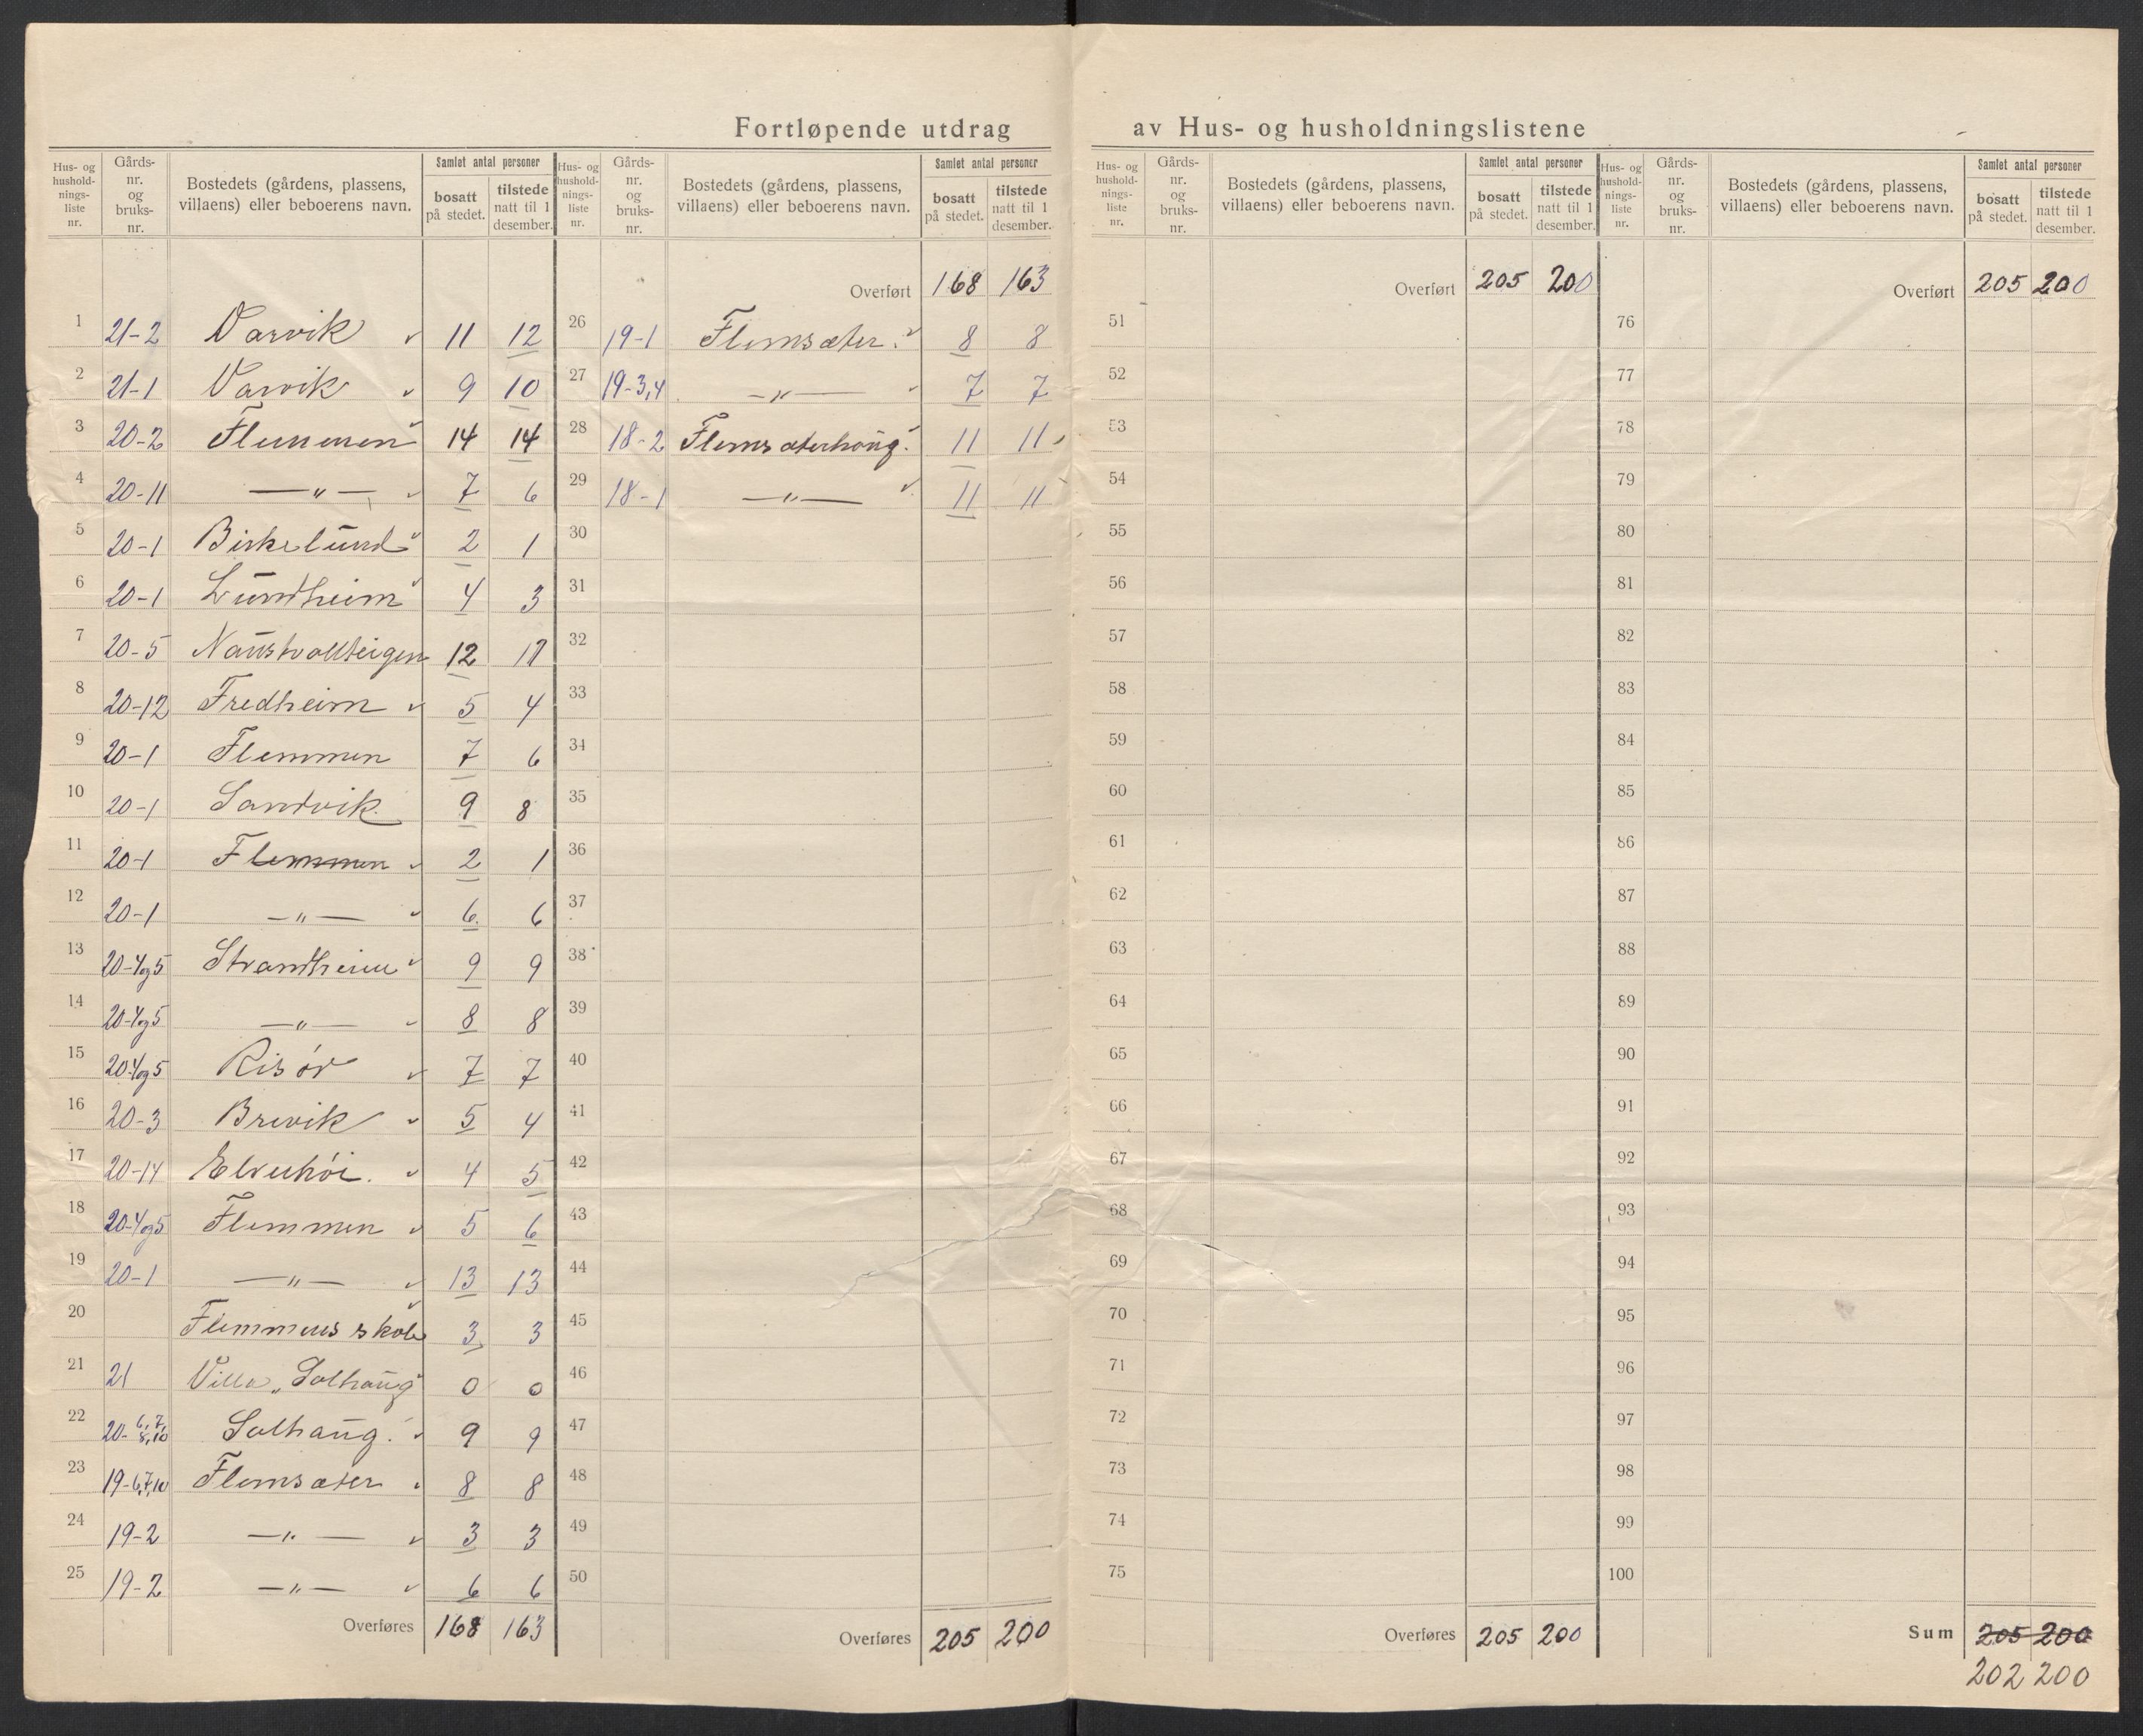 Fortløpende utdrag av Hus- og husholdningslistene
Hus- og husholdnings-liste nr. | Gårds-nr. og bruks-nr. | Bostedets (gårdens, plassens, villaens) eller beboerens navn. | Samlet antal personer bosatt på stedet. | tilstede natt til 1 desember.
1 21-2 Varvik 11 12
2 21-1 Varvik 9 10
3 20-2 Flemmen 14 14
4 20-11 —"— 7 6
5 20-1 Birkelund 2 1
6 20-1 Lundheim 4 3
7 20-5 Naustvollteigen 12 11
8 20-12 Fredheim 5 4
9 20-1 Flemmen 7 6
10 20-1 Sandvik 9 8
11 20-1 Flemmen 2 1
12 20-1 —"— 6 6
13 20-4og5 Strandheim 9 9
14 20-4og5 —"— 8 8
15 20-4og5 Risør 7 7
16 20-3 Brevik 5 4
17 20-14 Elvehøi. 4 5
18 20-4og5 Flemmen 5 6
19 20-1 —"— 13 13
20 Flemmens skole 3 3
21 21 Villa „Solhaug" 0 0
22 20-6,7,8,10 Solhaug. 9 9
23 19-6,7,10 Flemsæter 8 8
24 19-2 —"— 3 3
25 19-2 —"— 6 6
Overføres 168 163
Hus- og husholdnings-liste nr. | Gårds-nr. og bruks-nr. | Bostedets (gårdens, plassens, villaens) eller beboerens navn. | Samlet antal personer bosatt på stedet. | tilstede natt til 1 desember.
Overført 168 163
26 19-1 Flemsæter. 8 8
27 19-3,4 —"— 7 7
28 18-2 Flemsæterhaug. 11 11
29 18-1 —"— 11 11
30
31
32
33
34
35
36
37
38
39
40
41
42
43
44
45
46
47
48
49
50
Overføres 205 200
Hus- og husholdnings-liste nr. | Gårds-nr. og bruks-nr. | Bostedets (gårdens, plassens, villaens) eller beboerens navn. | Samlet antal personer bosatt på stedet. | tilstede natt til 1 desember.
Overført 205 200
51
52
53
54
55
56
57
58
59
60
61
62
63
64
65
66
67
68
69
70
71
72
73
74
75
Overføres 205 200
Hus- og husholdnings-liste nr. | Gårds-nr. og bruks-nr. | Bostedets (gårdens, plassens, villaens) eller beboerens navn. | Samlet antal personer bosatt på stedet. | tilstede natt til 1 desember.
Overført 205 200
76
77
78
79
80
81
82
83
84
85
86
87
88
89
90
91
92
93
94
95
96
97
98
99
100
Sum 205 200
202 200